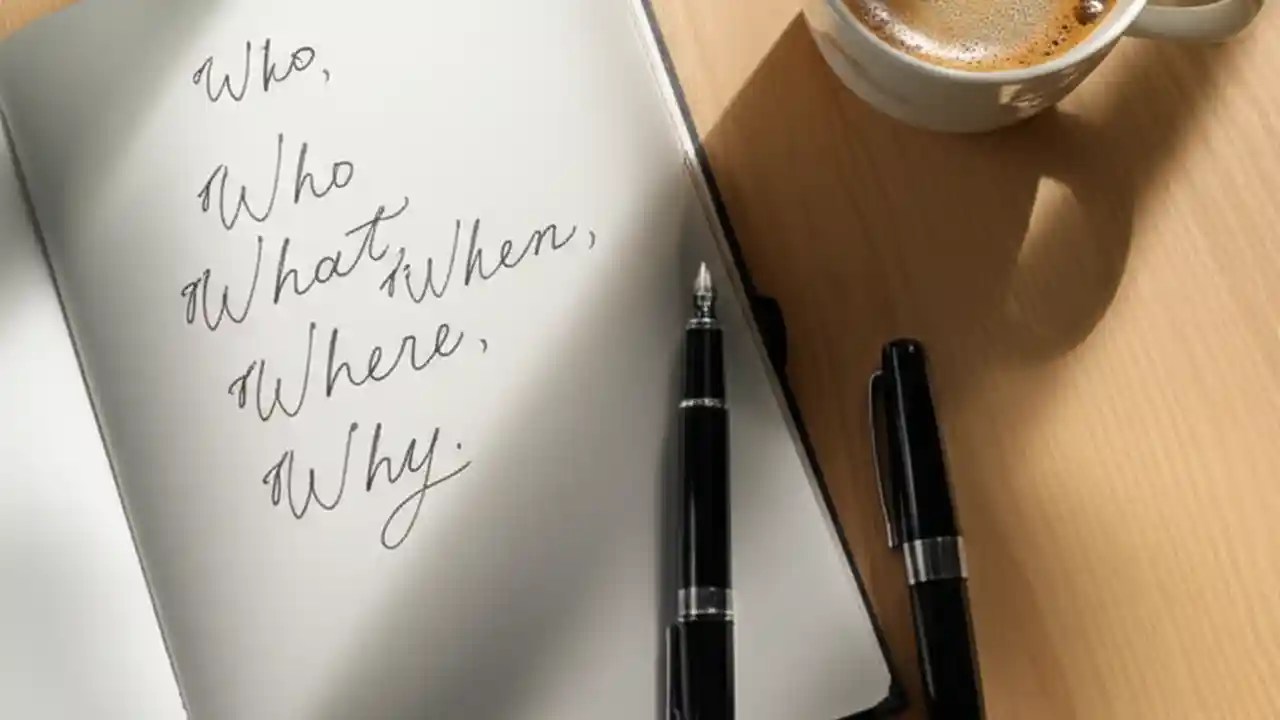 Who,
Who
What, When,
Where,
Why.